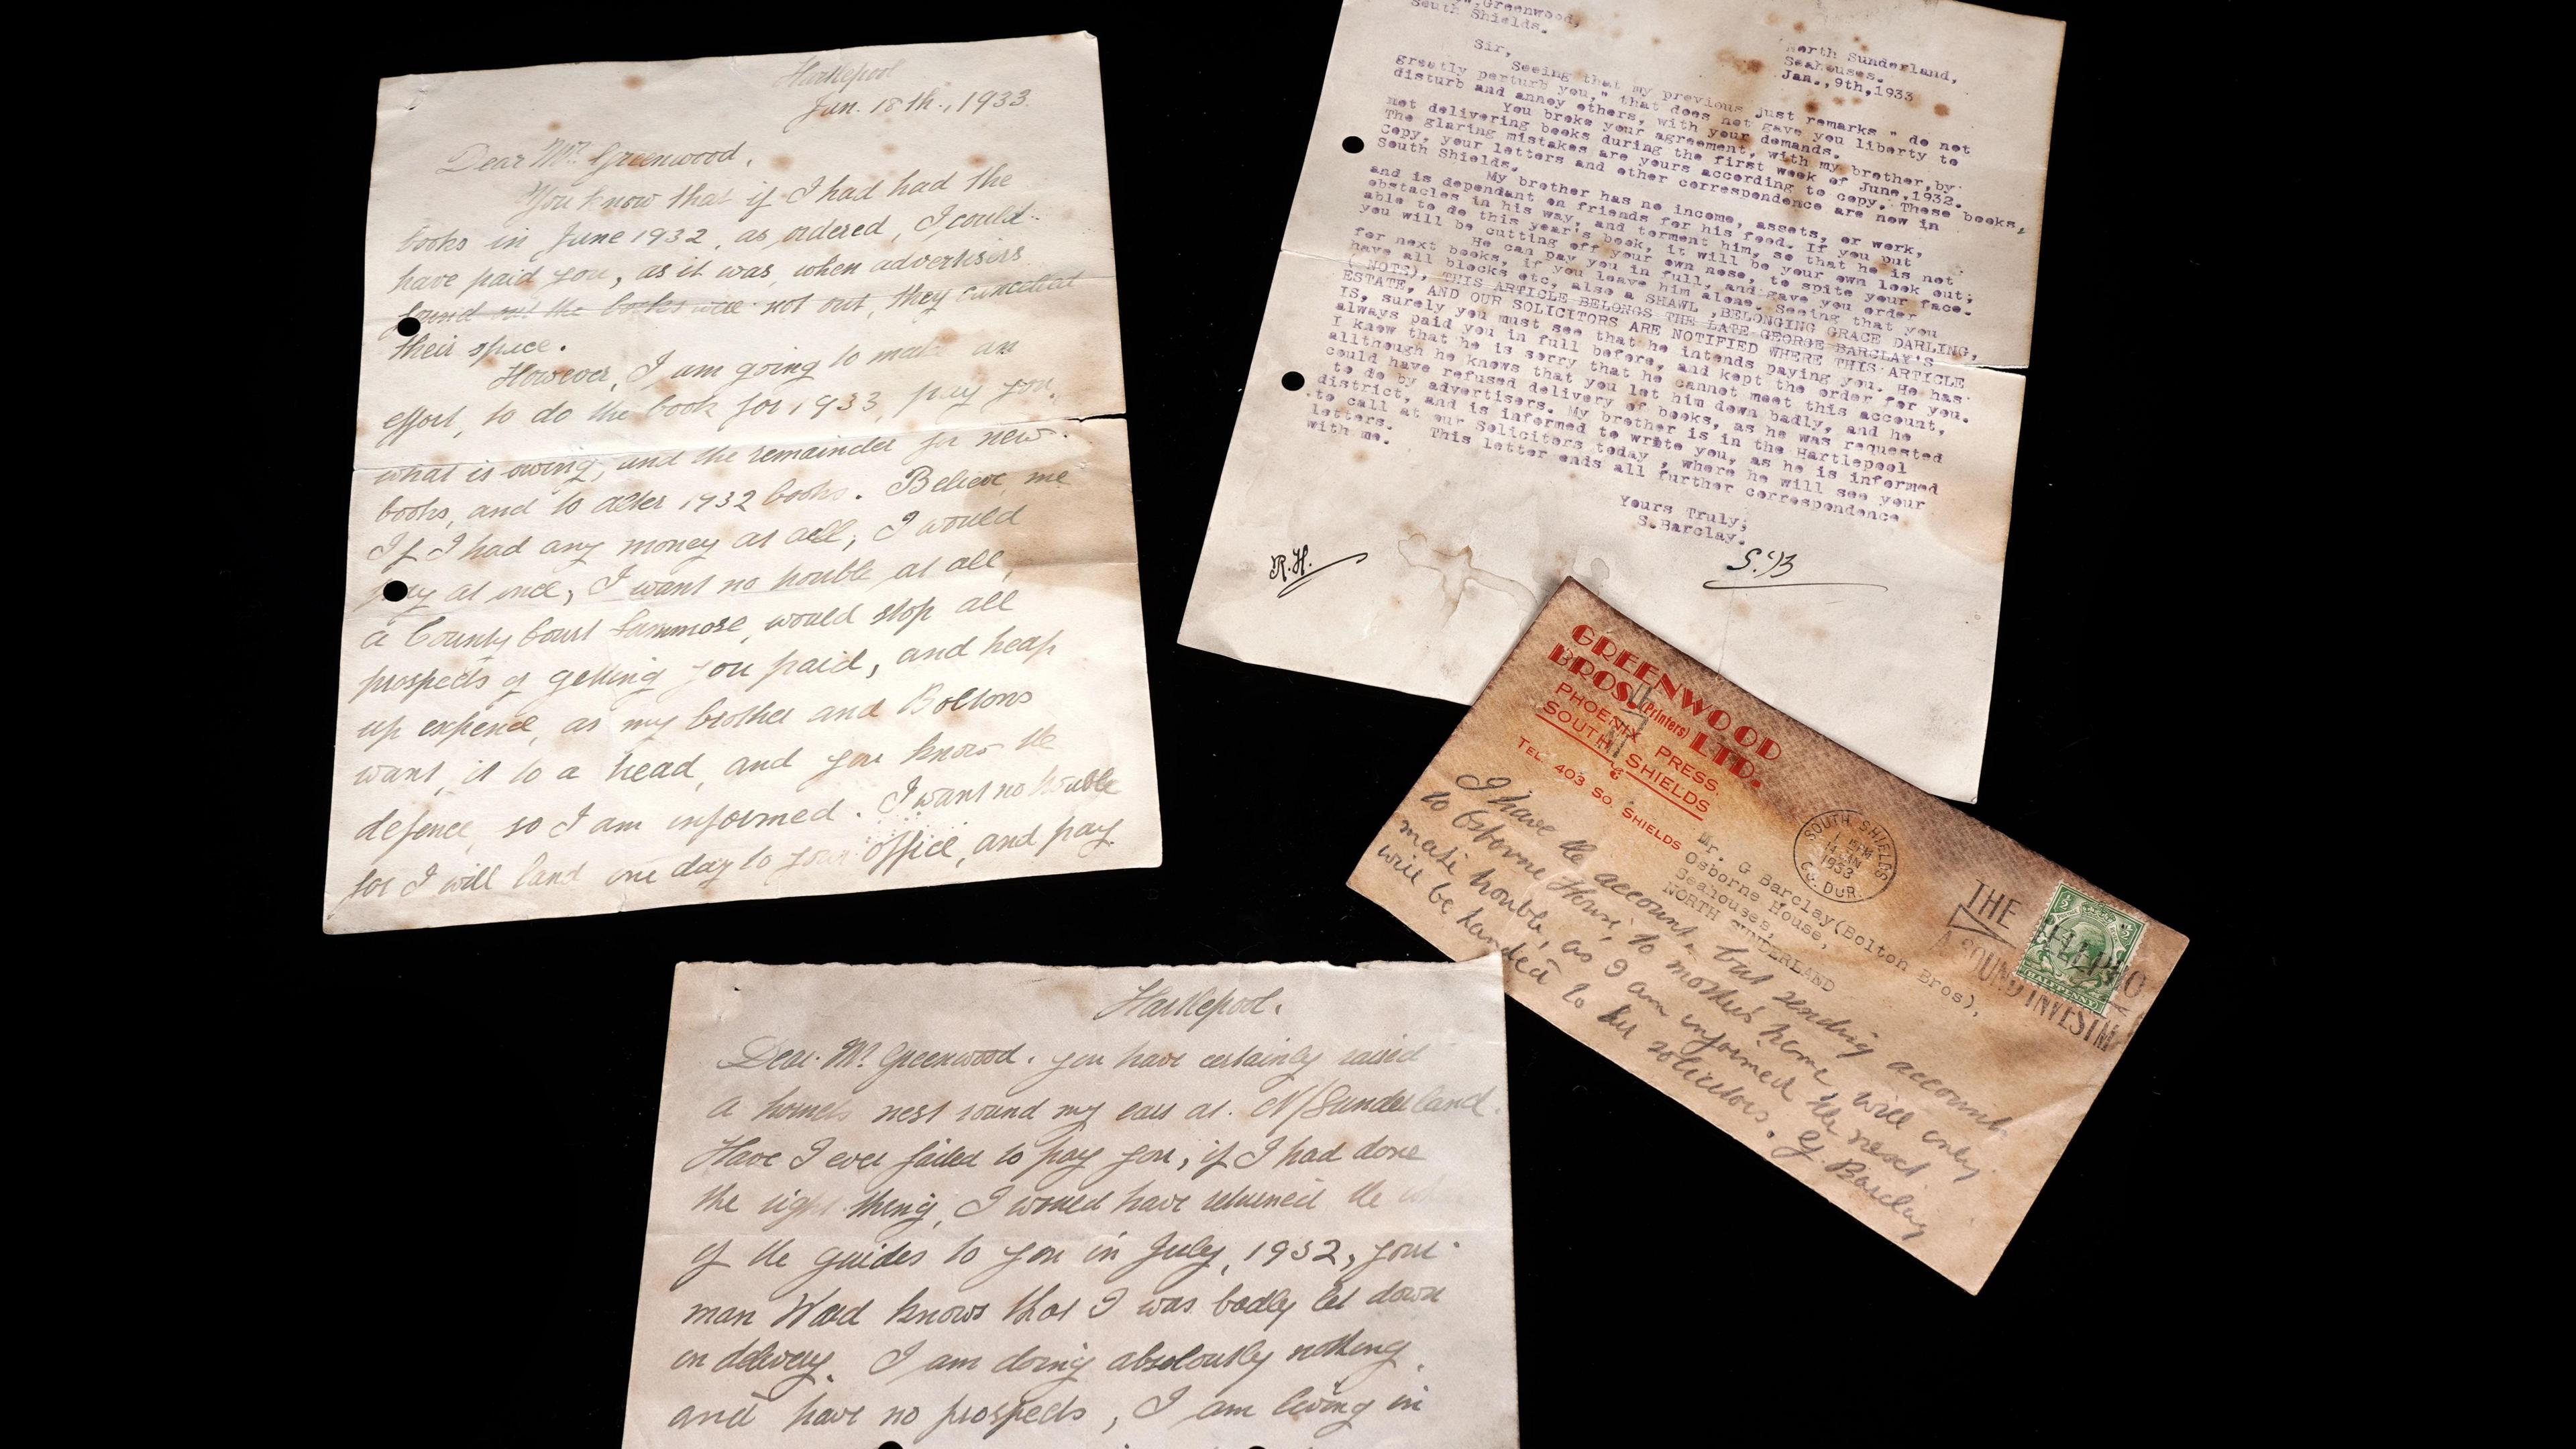 Hartlepool
Jan. 18th., 1933.
Dear Mr. Greenwood,
You know that if I had had the
books in June 1932, as ordered, I could
have paid you, as it was, when advertisers
found out the books were not out, they cancelled
their space.
However, I am going to make an
effort, to do the book for 1933, pay you,
what is owing, and the remainder for new
books, and to alter 1932 books. Believe me
If I had any money at all, I would
pay at once, I want no trouble at all,
a County Court Summose, would stop all
prospects of getting you paid, and heap
up expence, as my brother and Boltons
want it to a head, and you know the
defence, so I am informed. I want no trouble
for I will land one day to your office, and pay.
Greenwood,
South Shields.
North Sunderland,
Seahouses.
Jan.,9th,1933
Sir,
Seeing that my previous just remarks " do not
greatly perturb you," that does not gave you liberty to
disturb and annoy others, with your demands.
You broke your agreement, with my brother,by
not delivering books during the first week of June,1932.
The glaring mistakes are yours according to copy. These books,
Copy, your letters and other correspondence are now in
South Shields.
My brother has no income, assets, or work,
and is dependant on friends for his food. If you put
obstacles in his way, and torment him, so that he is not
able to do this year's book, it will be your own look out;
you will be cutting off your own nose, to spite your face.
He can pay you in full, and gave you order
for next books, if you leave him alone. Seeing that you
have all blocks etc, also a SHAWL ,BELONGING GRACE DARLING,
( NOTE), THIS ARTICLE BELONGS THE LATE GEORGE BARCLAY'S
ESTATE, AND OUR SOLICITORS ARE NOTIFIED WHERE THIS ARTICLE
IS, surely you must see that he intends paying you. He has
always paid you in full before, and kept the order for you.
I know that he is sorry that he cannot meet this account,
allthough he knows that you let him down badly, and he
could have refused delivery of books, as he was requested
to do by advertisers. My brother is in the Hartlepool
district, and is informed to write you, as he is informed
to call at our Solicitors today , where he will see your
letters.
This letter ends all further correspondence
with me.
Yours Truly;
S.Barclay.
R.H.
S.B
GREENWOOD
BROS. (Printers) LTD.
PHOENIX PRESS,
SOUTH SHIELDS
TEL. 403 SO. SHIELDS
SOUTH SHIELDS
14 JAN
1933
CO. DUR.
THE
A SOUND INVESTM
HALFPENNY
Mr. G Barclay(Bolton Bros),
Osborne House,
Seahouses,
NORTH SUNDERLAND
I have the account, but sending account
to Osborne House, to mother's home will only
make trouble, as I am informed the next
will be handed to her solicitors. G. Barclay
Hartlepool.
Dear Mr Greenwood. you have certainly raised
a hornets nest round my ears at N/Sunderland.
Have I ever failed to pay you, if I had done
the right thing, I would have returned the
of the guides to you in July, 1932, your
man Ward knows that I was badly let down
on delivery. I am doing absolously nothing
and have no prospects, I am living in